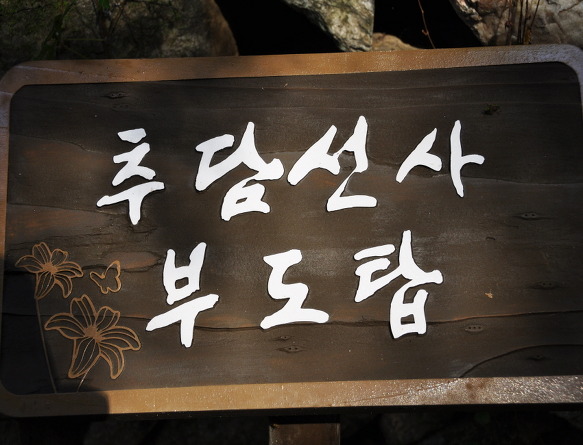 추담선사
부도탑